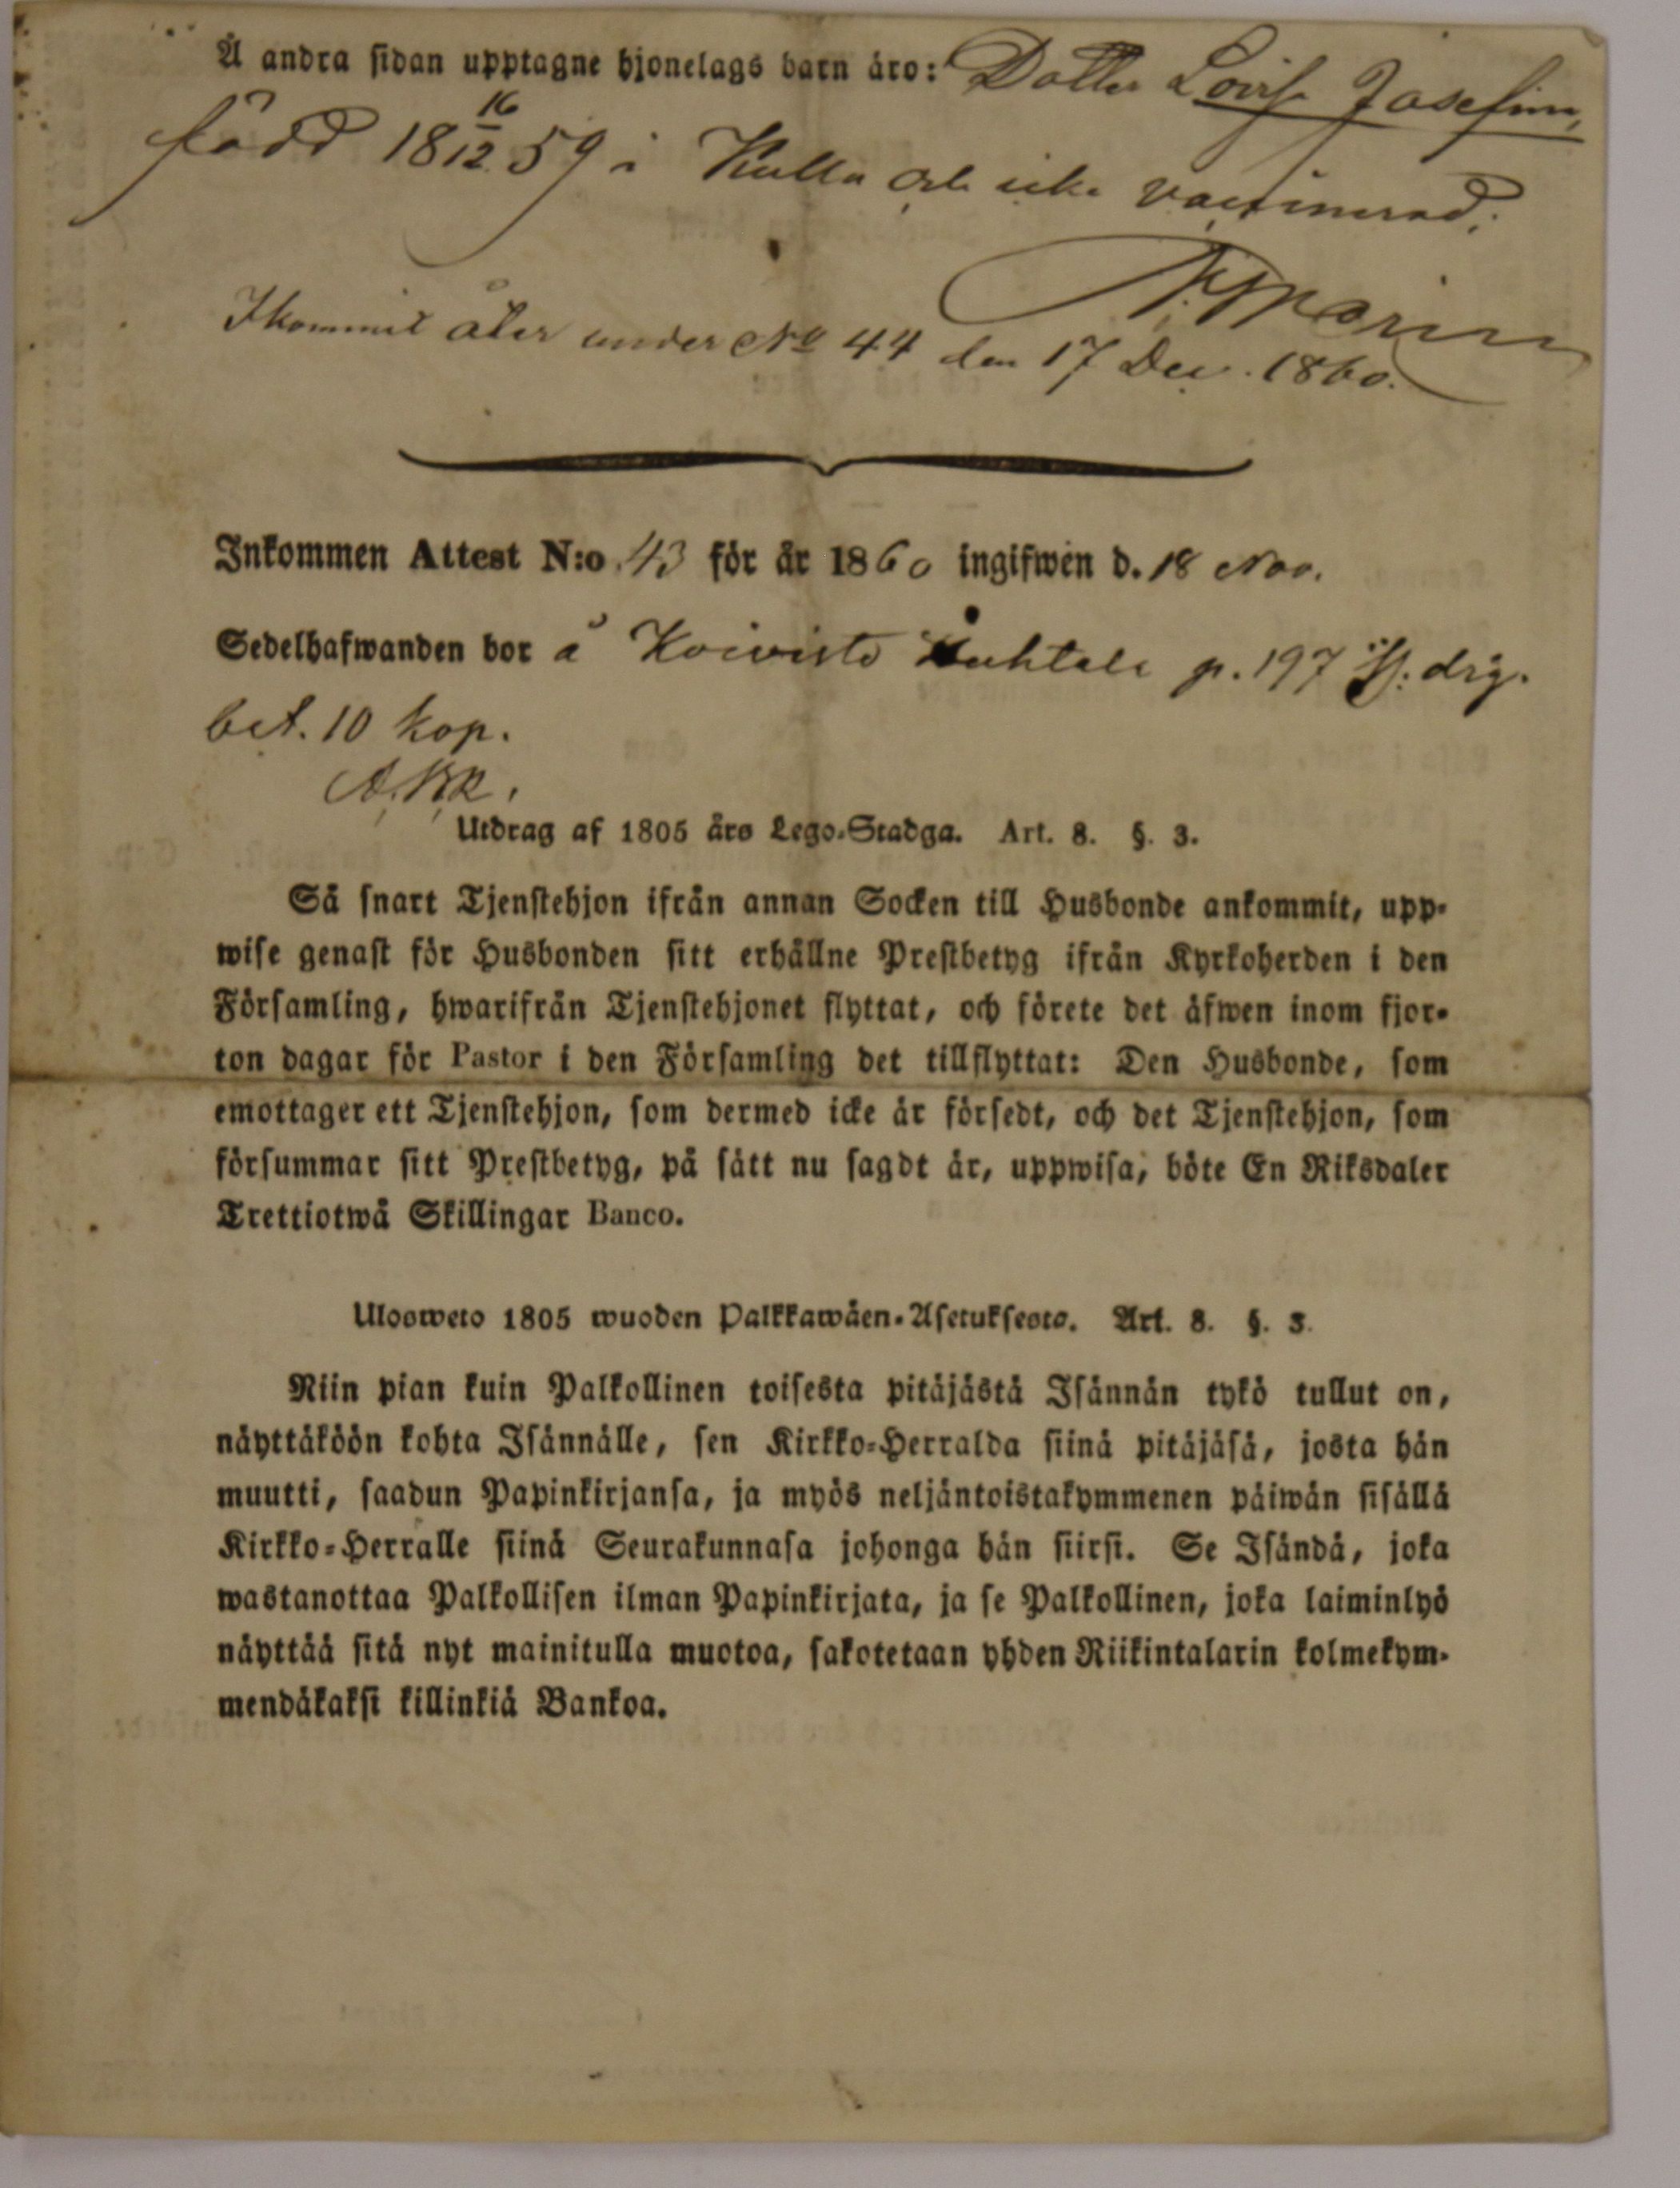 Å andra sidan upptagne hjonelags barn äro: Dotter Lovisa Josefina,
född 18 16/12 59 i Kulla och icke vaccinerad.
Inkommit åter under No 44 den 17 Dec. 1860.
Inkommen Attest N:o 43 för år 1860 ingifwen d. 18 Nov.
Sedelhafwanden bor å Koivisto Luhtala p. 197 drg.
bet. 10 kop.
Utdrag af 1805 års Lego-Stadga. Art. 8. §. 3.
Så snart Tjenstehjon ifrån annan Socken till Husbonde ankommit, upp-
wise genast för Husbonden sitt erhållne Prestbetyg ifrån Kyrkoherden i den
Församling, hwarifrån Tjenstehjonet flyttat, och förete det äfwen inom fjor-
ton dagar för Pastor i den Församling det tillflyttat: Den Husbonde, som
emottager ett Tjenstehjon, som dermed icke är försedt, och det Tjenstehjon, som
försummar sitt Prestbetyg, på sätt nu sagdt är, uppwisa, böte En Riksdaler
Trettiotwå Skillingar Banco.
Ulosweto 1805 wuoden Palkkawäen-Asetuksesta. Art. 8. §. 3.
Niin pian kuin Palkollinen toisesta pitäjästä Isännän tykö tullut on,
näyttäköön kohta Isännälle, sen Kirkko-Herralda siinä pitäjäsä, josta hän
muutti, saadun Papinkirjansa, ja myös neljäntoistakymmenen päiwän sisällä
Kirkko-Herralle siinä Seurakunnasa johonga hän siirsi. Se Isändä, joka
wastanottaa Palkollisen ilman Papinkirjata, ja se Palkollinen, joka laiminlyö
näyttää sitä nyt mainitulla muotoa, sakotetaan yhden Riikintalarin kolmekym-
mendäkaksi killinkiä Bankoa.